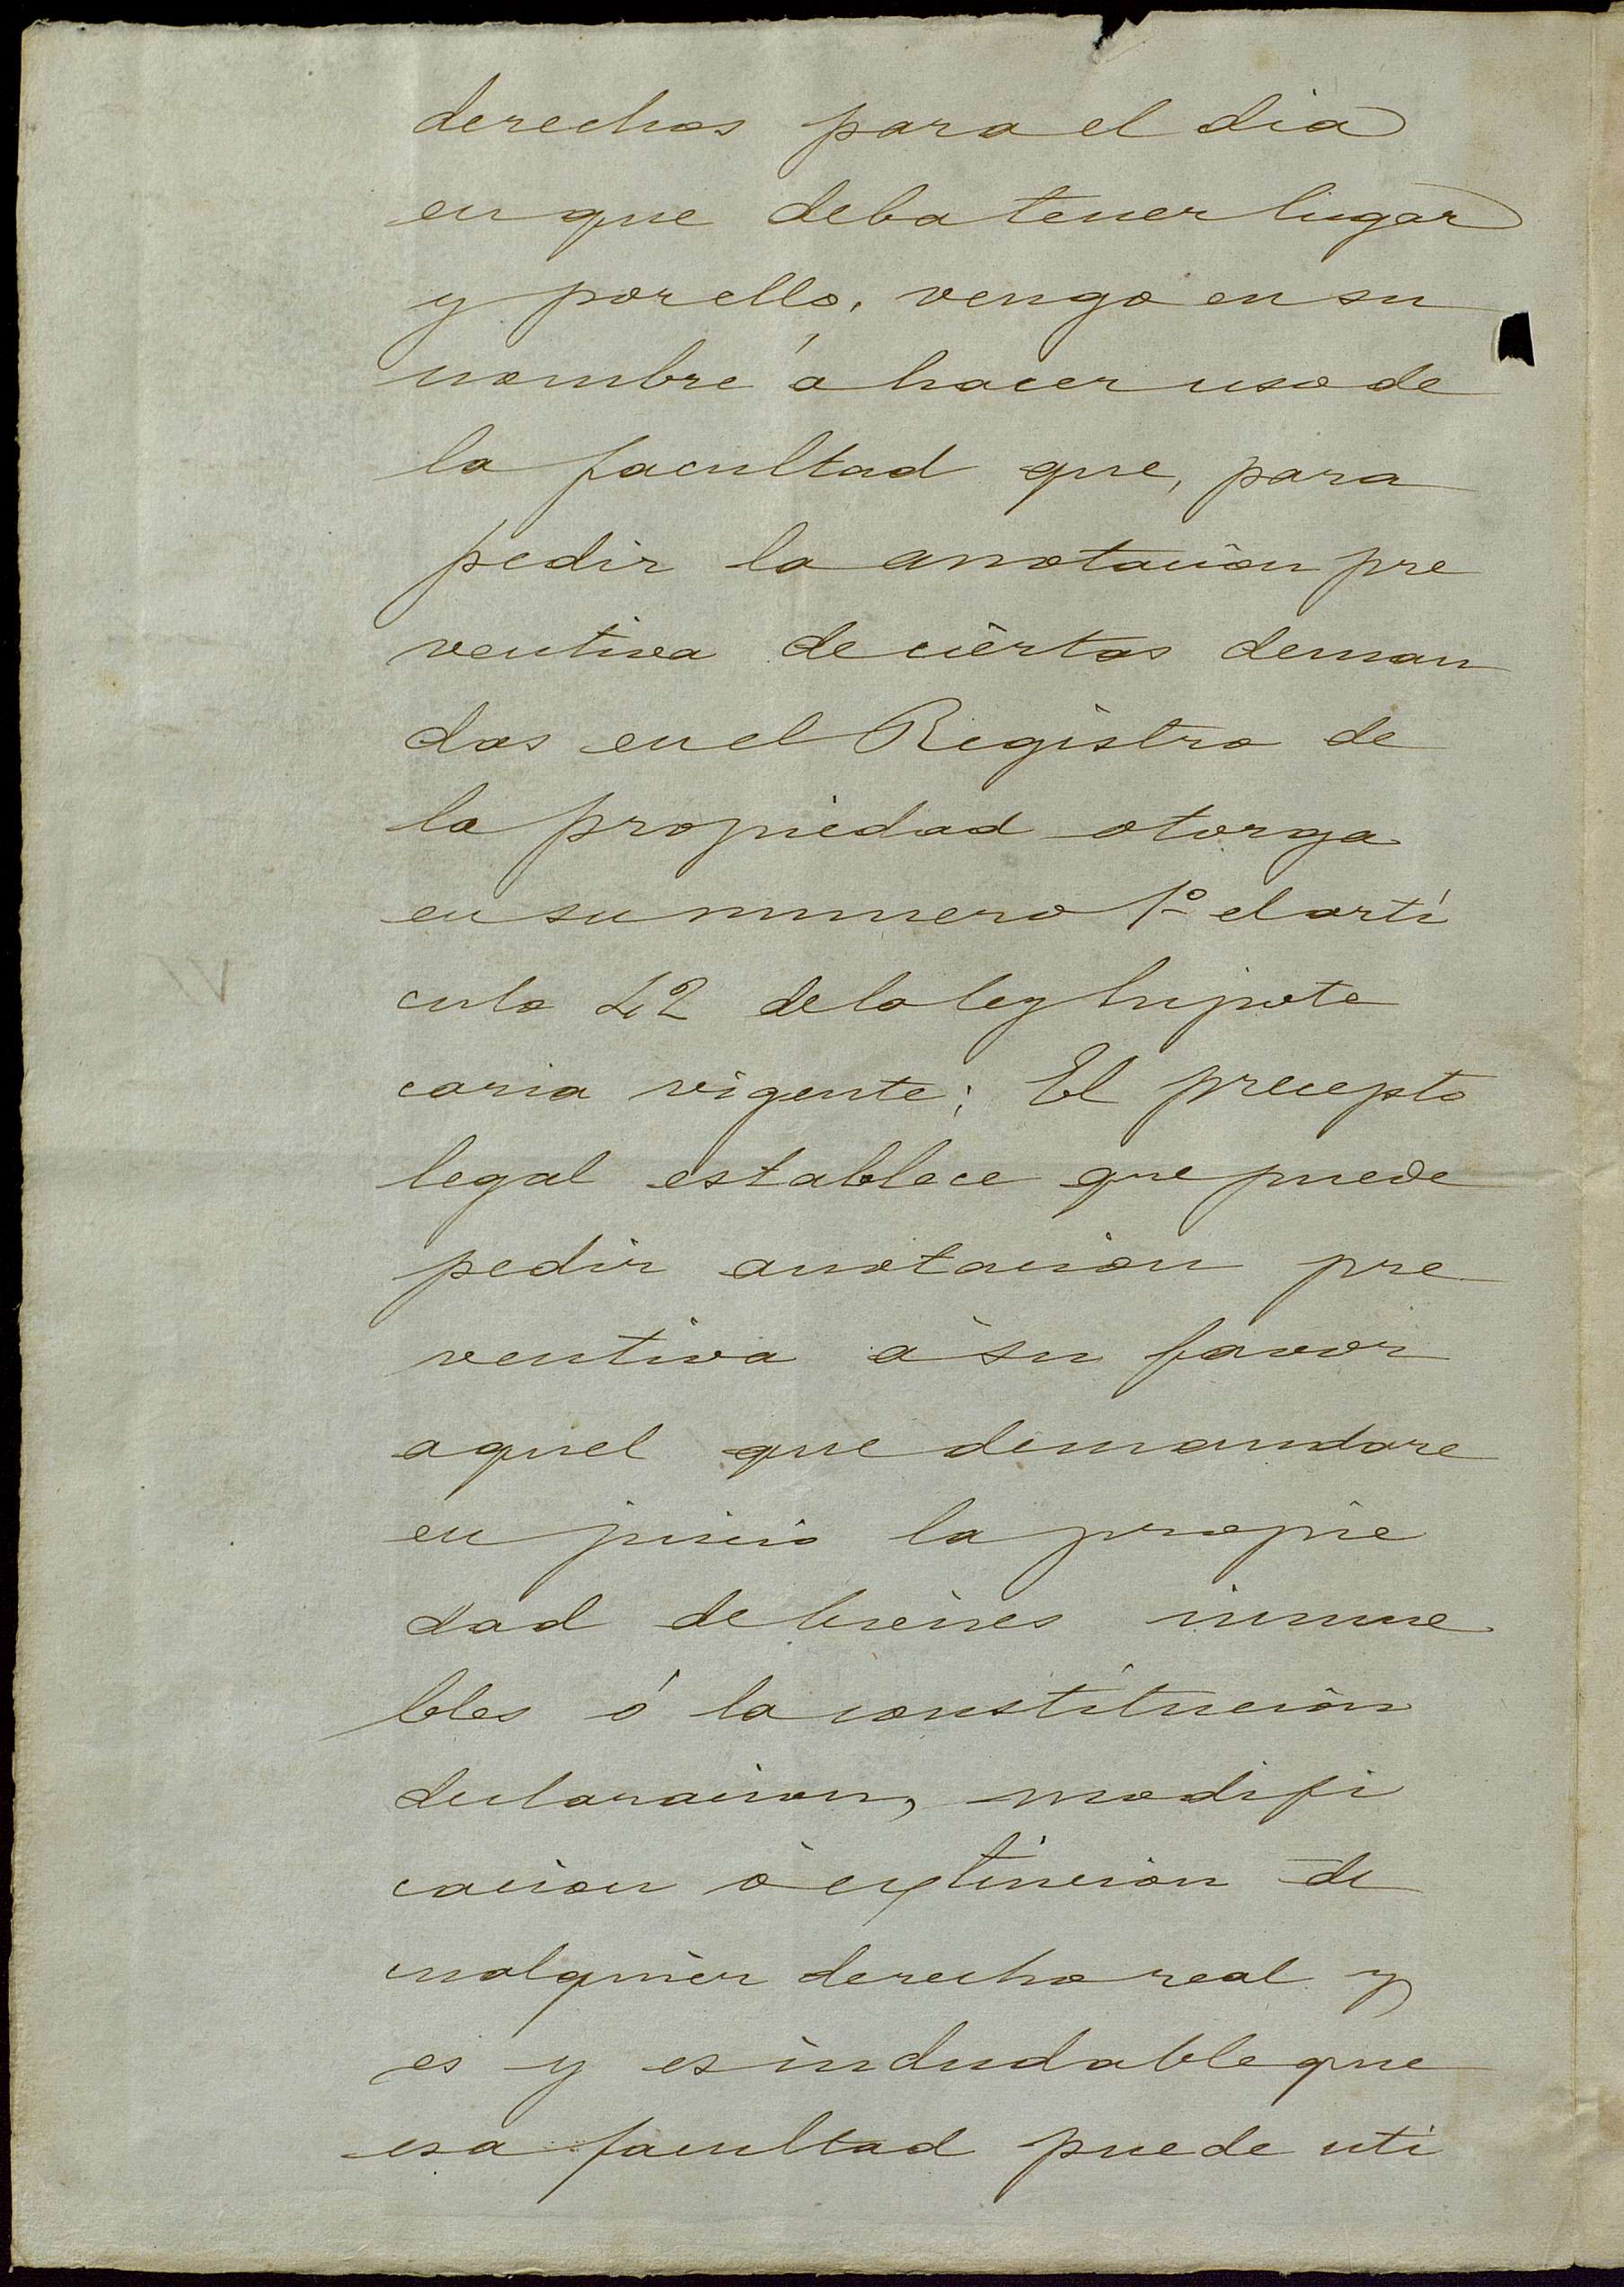 derechos para el dia
en que deba tener lugar
y por ello, vengo en su
nombre á hacer uso de
la facultad que, para
pedir la anotación pre
ventiva de ciertas deman
das en el Registro de
la propiedad otorga
en su numero 1º el artí
culo 42 de la ley hipote
caria vigente; El precepto
legal establece que puede
pedir anotacion pre
ventiva á su favor
aquel que demandare
en juicio la propie
dad de bienes inmue
bles ó la constitución
declaracion, modifi
cacion ó extinción de
cualquier derecho real y
es y es indudable que
esa facultad puede uti